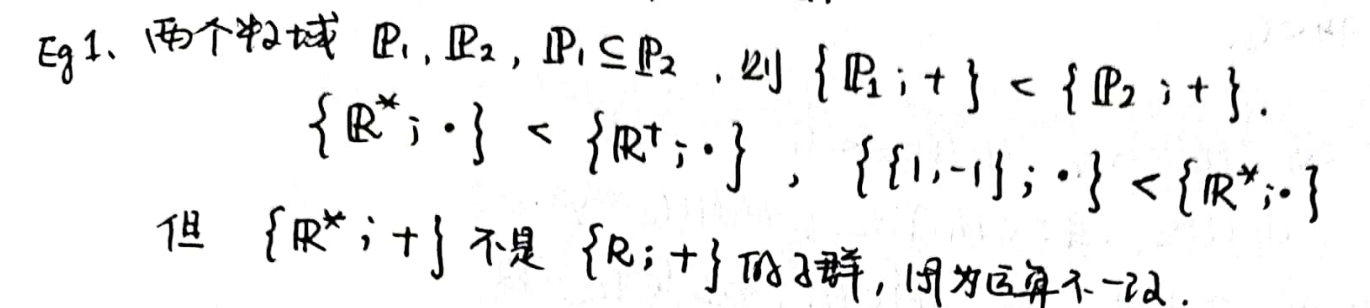 Eg 1、两个数域 ℙ₁, ℙ₂, ℙ₁ ⊆ ℙ₂, 则 { ℙ₁ ; + } < { ℙ₂ ; + }.
{ ℝ* ; · } < { ℝ⁺ ; · }, { {1,-1} ; · } < { ℝ* ; · }
但 { ℝ* ; + } 不是 { ℝ ; + } 的子群, 因为运算不一致.